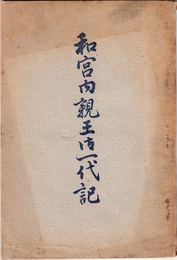 和宮内親王御一代記